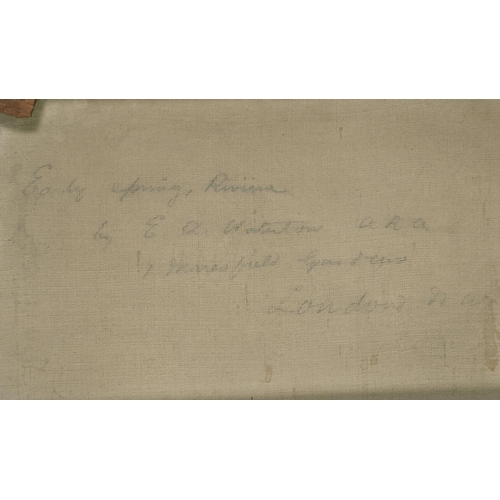 Early Spring, Riviera
by E A. Waterlow A R A
1 Maresfield Gardens
London N W